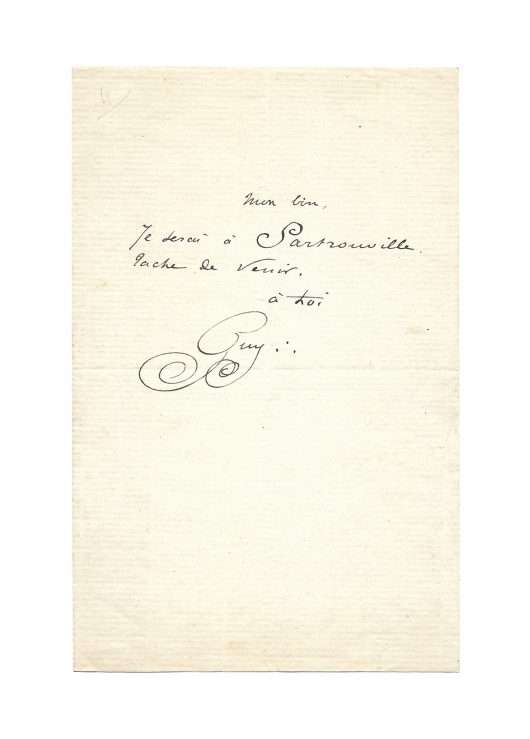 Mon bin,
Je serai à Sartrouville.
Tache de venir.
à toi
Guy ∴